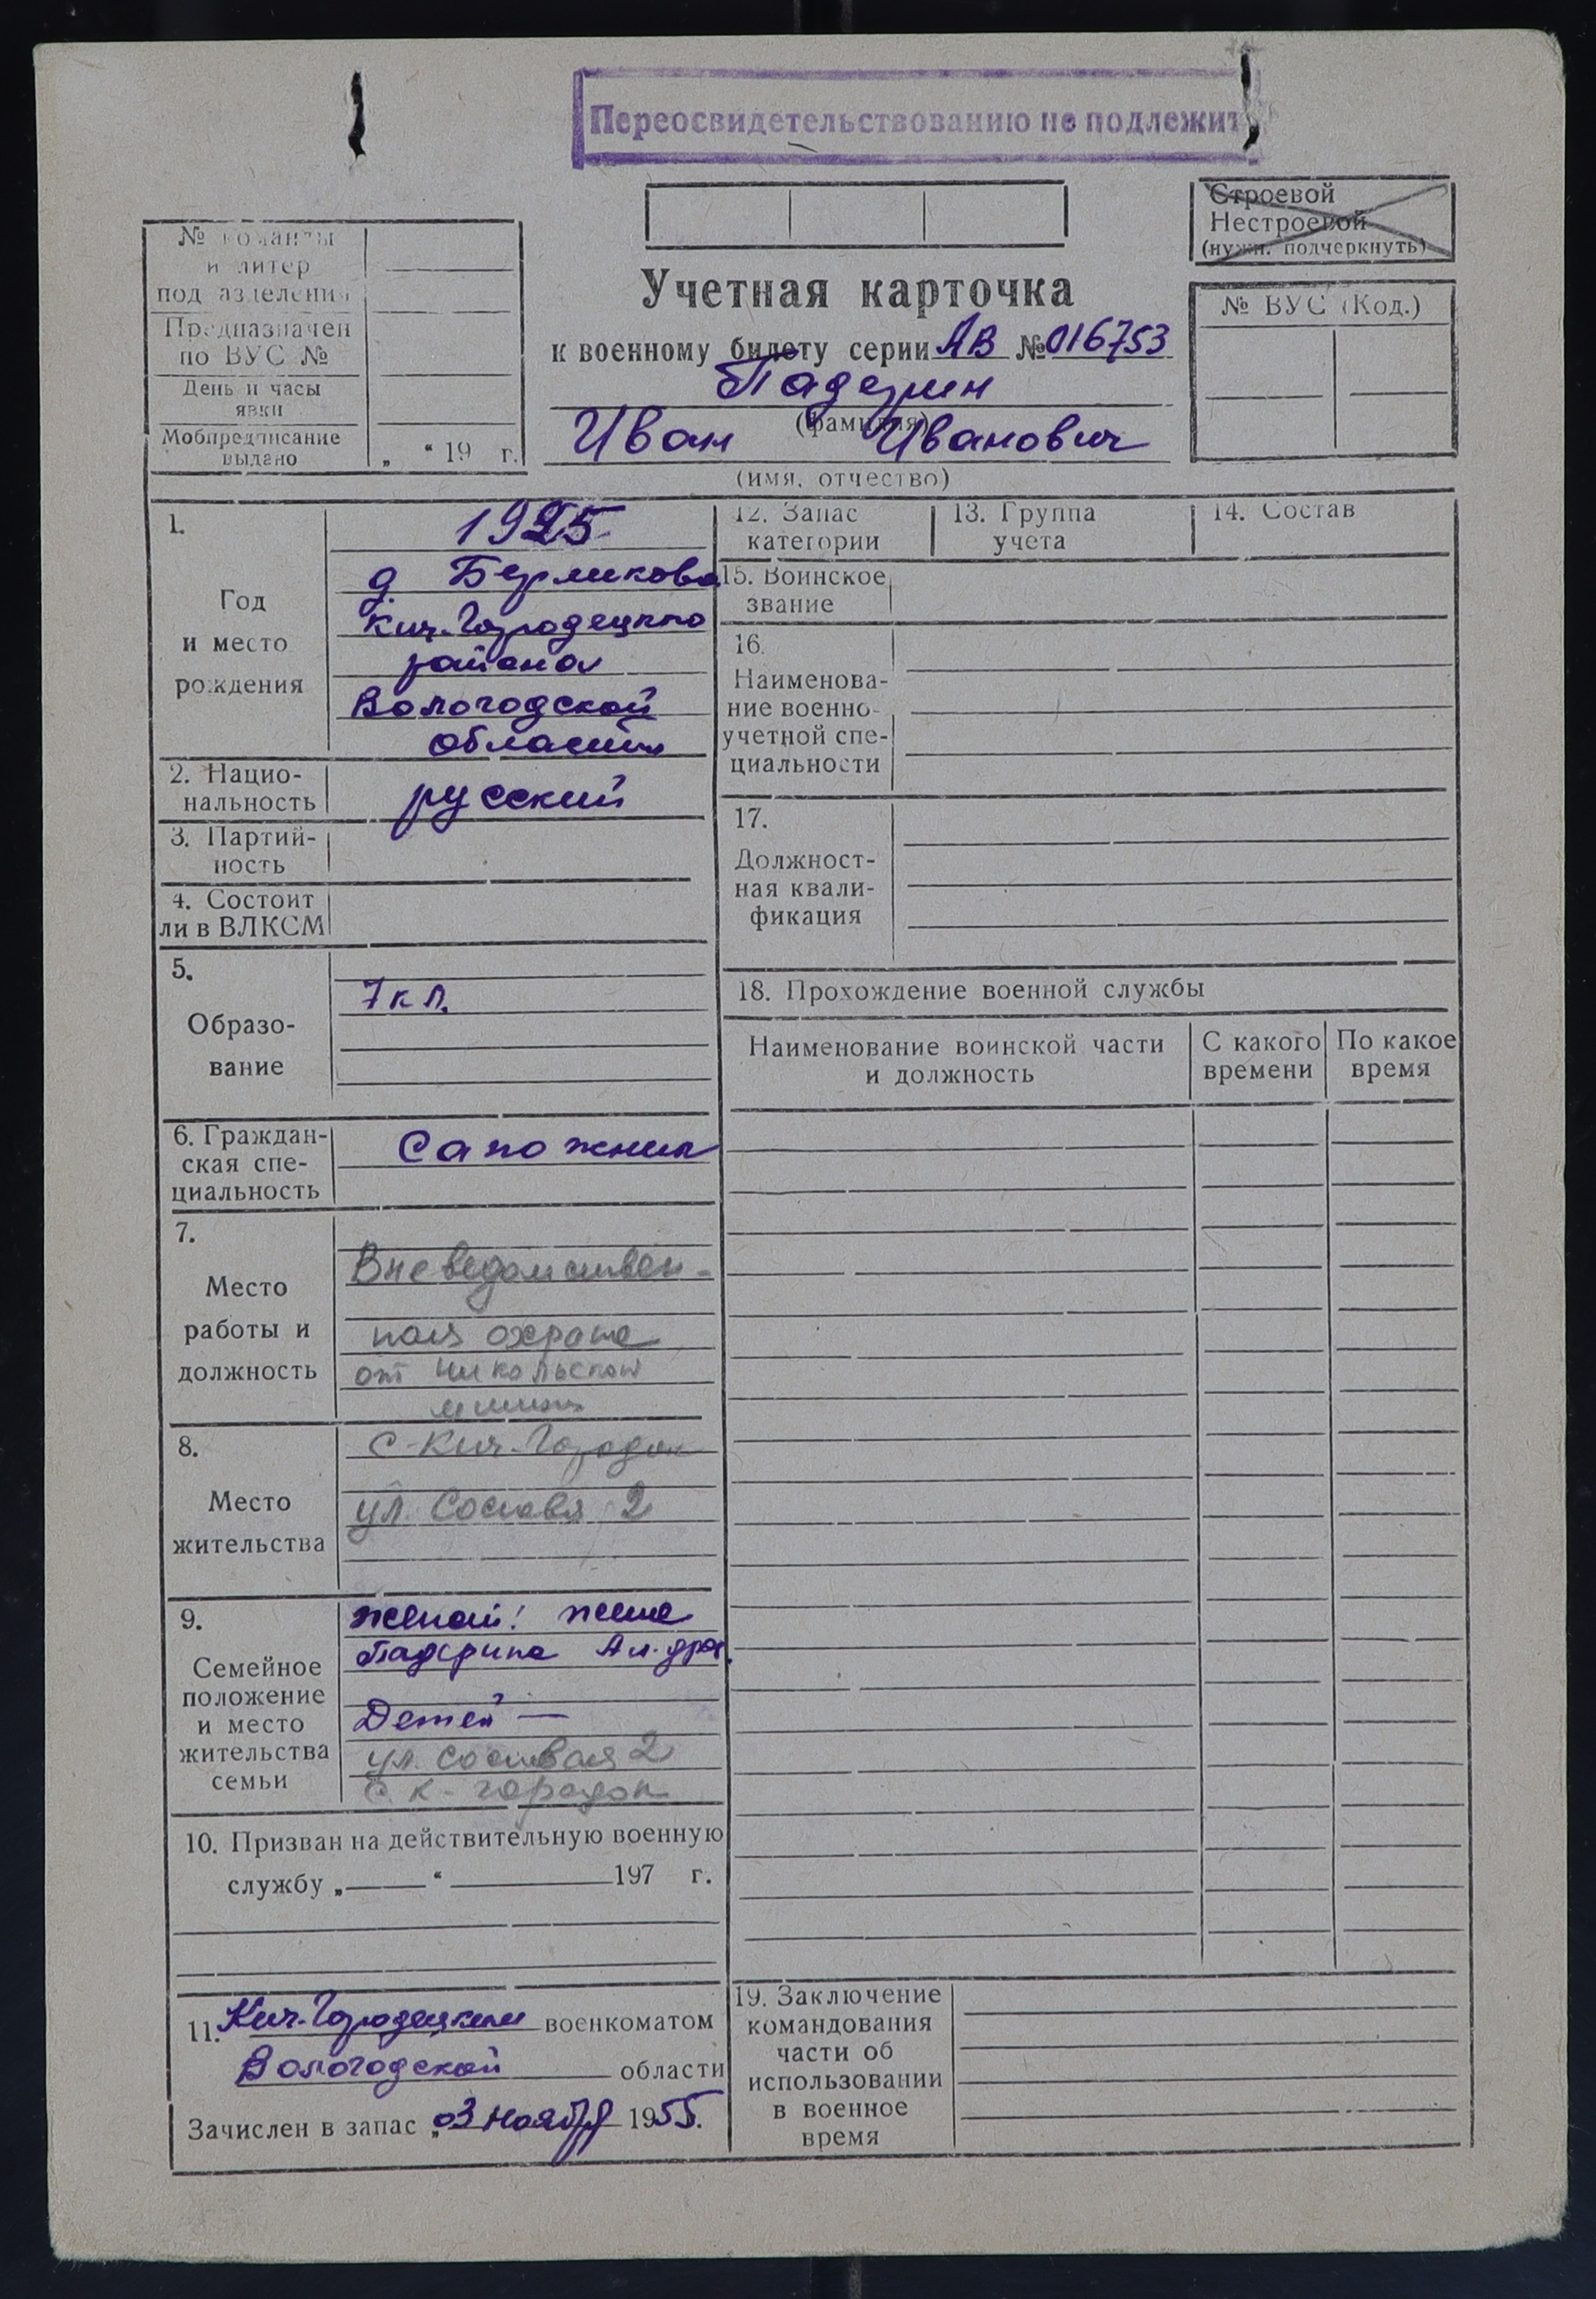 Переосвидетельствованию не подлежит
Строевой
Нестроевой
(нужн. подчеркнуть)
№ команты
и литер
подразделения
Предназначен
по ВУС №
День и часы
явки
Мобпредписание
выдано
„ “ 19 г.
Учетная карточка
к военному билету серии АВ № 016753
Падерин
(фамилия)
Иван Иванович
(имя, отчество)
№ ВУС (Код.)
1.
Год
и место
рождения
1925
д. Берликово
Кич-Городецкого
района
Вологодской
области
2. Нацио-
нальность
русский
3. Партий-
ность
4. Состоит
ли в ВЛКСМ
5.
Образо-
вание
7 кл.
6. Граждан-
ская спе-
циальность
Сапожник
7.
Место
работы и
должность
Вневедомствен-
ная охрана
от Никольской
8.
Место
жительства
с-Кич-Городок
ул. 2
9.
Семейное
положение
и место
жительства
семьи
женат: жена
Падерина Ал-дра.
Детей —
ул. 2
с. К-городок
10. Призван на действительную военную
службу „ “ 197 г.
11. Кич-Городецким военкоматом
Вологодской области
Зачислен в запас „03 ноября 1955.
12. Запас
категории
13. Группа
учета
14. Состав
15. Воинское
звание
16.
Наименова-
ние военно-
учетной спе-
циальности
17.
Должност-
ная квали-
фикация
18. Прохождение военной службы
Наименование воинской части
и должность
С какого
времени
По какое
время
19. Заключение
командования
части об
использовании
в военное
время